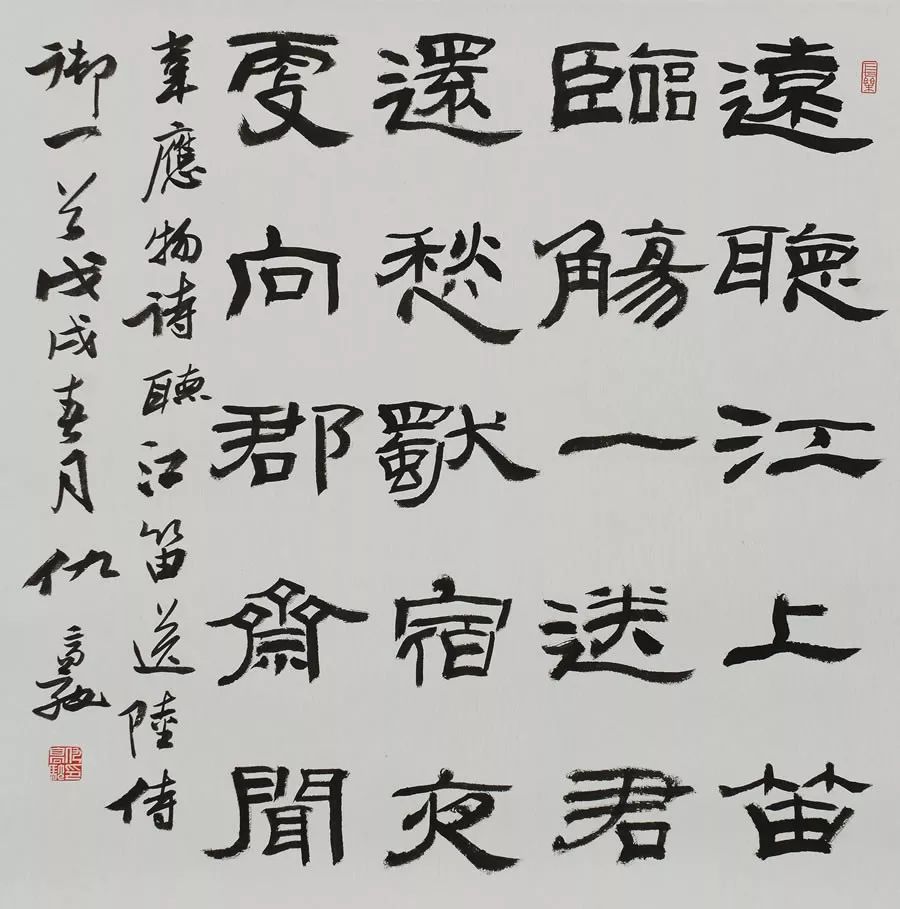 遠聽江上笛
臨觴一送君
還愁獨宿夜
更向郡齋聞
韋應物詩聽江笛送陸侍
御一首戊戌春月仇高馳